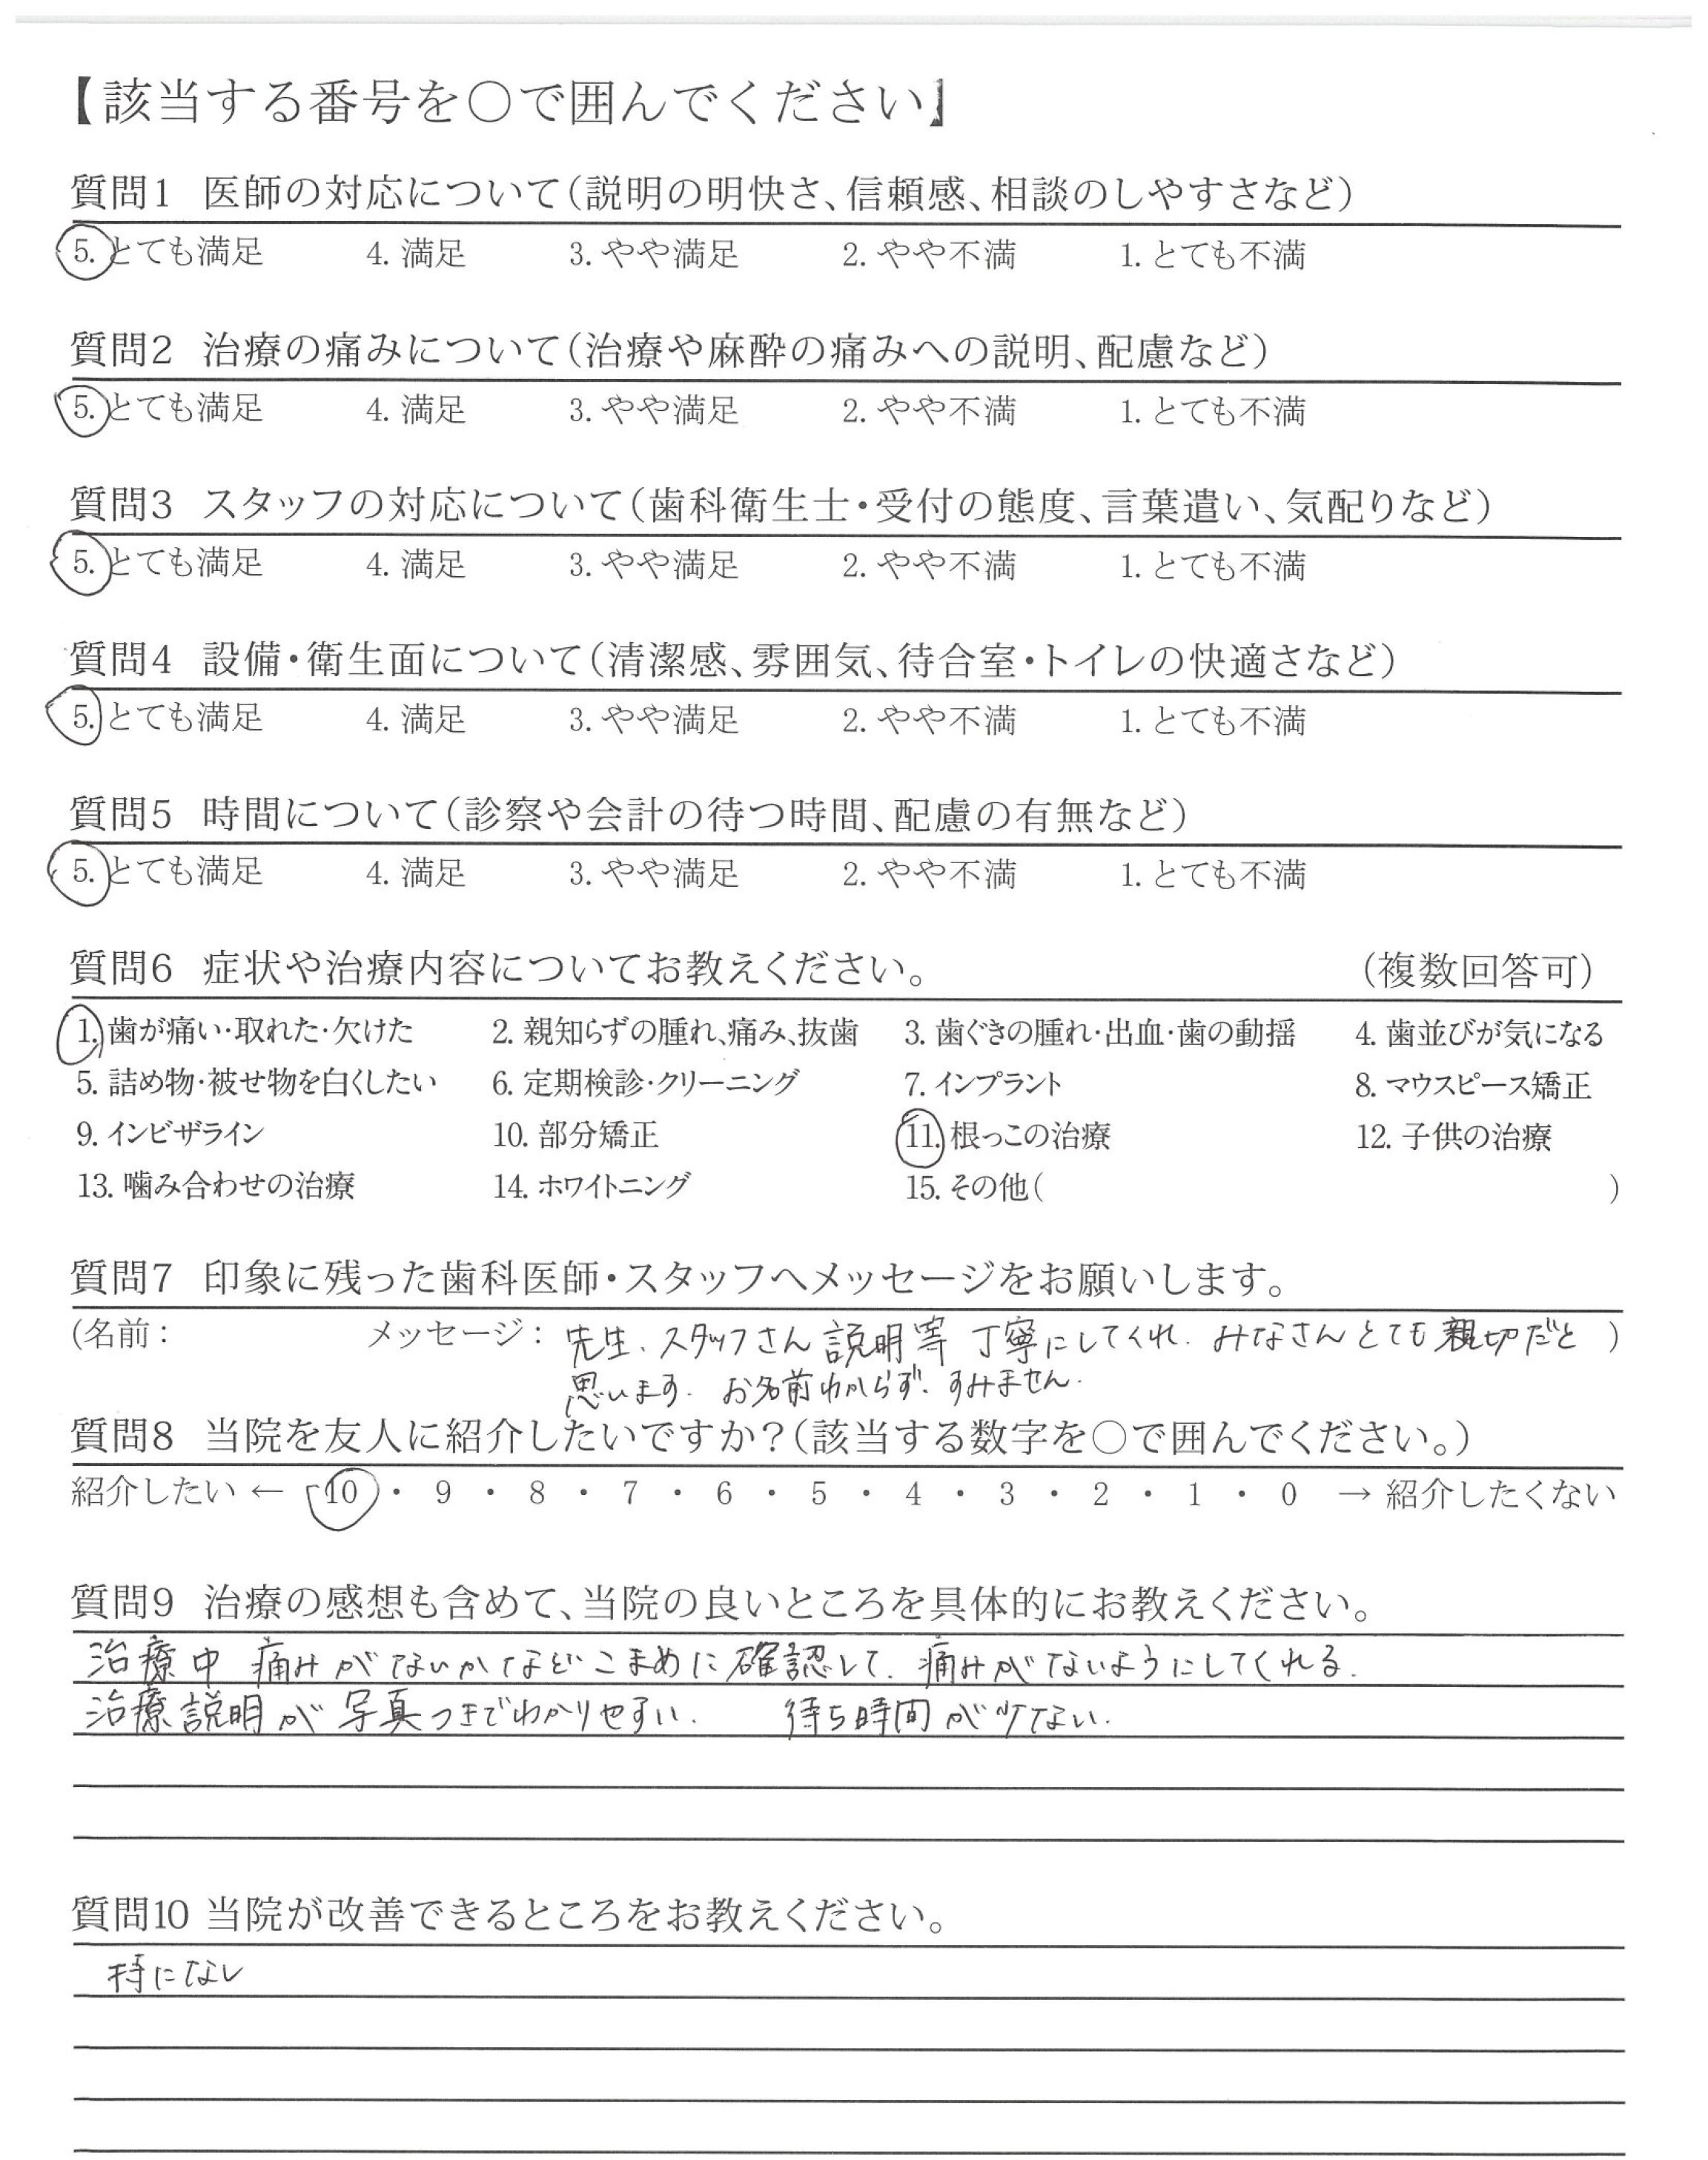 【該当する番号を○で囲んでください】
質問1 医師の対応について(説明の明快さ、信頼感、相談のしやすさなど)
5. とても満足 4. 満足 3. やや満足 2. やや不満 1. とても不満
質問2 治療の痛みについて(治療や麻酔の痛みへの説明、配慮など)
5. とても満足 4. 満足 3. やや満足 2. やや不満 1. とても不満
質問3 スタッフの対応について(歯科衛生士・受付の態度、言葉遣い、気配りなど)
5. とても満足 4. 満足 3. やや満足 2. やや不満 1. とても不満
質問4 設備・衛生面について(清潔感、雰囲気、待合室・トイレの快適さなど)
5. とても満足 4. 満足 3. やや満足 2. やや不満 1. とても不満
質問5 時間について(診察や会計の待つ時間、配慮の有無など)
5. とても満足 4. 満足 3. やや満足 2. やや不満 1. とても不満
質問6 症状や治療内容についてお教えください。 (複数回答可)
1. 歯が痛い・取れた・欠けた 2. 親知らずの腫れ、痛み、抜歯 3. 歯ぐきの腫れ・出血・歯の動揺 4. 歯並びが気になる
5. 詰め物・被せ物を白くしたい 6. 定期検診・クリーニング 7. インプラント 8. マウスピース矯正
9. インビザライン 10. 部分矯正 11. 根っこの治療 12. 子供の治療
13. 噛み合わせの治療 14. ホワイトニング 15. その他( )
質問7 印象に残った歯科医師・スタッフへメッセージをお願いします。
(名前: メッセージ: 先生、スタッフさん 説明等 丁寧にしてくれ、みなさんとても親切だと )
思います。 お名前わからず、すみません。
質問8 当院を友人に紹介したいですか?(該当する数字を○で囲んでください。)
紹介したい ← 10 ・ 9 ・ 8 ・ 7 ・ 6 ・ 5 ・ 4 ・ 3 ・ 2 ・ 1 ・ 0 → 紹介したくない
質問9 治療の感想も含めて、当院の良いところを具体的にお教えください。
治療中 痛みがないかなどこまめに確認して、痛みがないようにしてくれる。
治療説明が写真つきでわかりやすい。 待ち時間が少ない。
質問10 当院が改善できるところをお教えください。
特になし